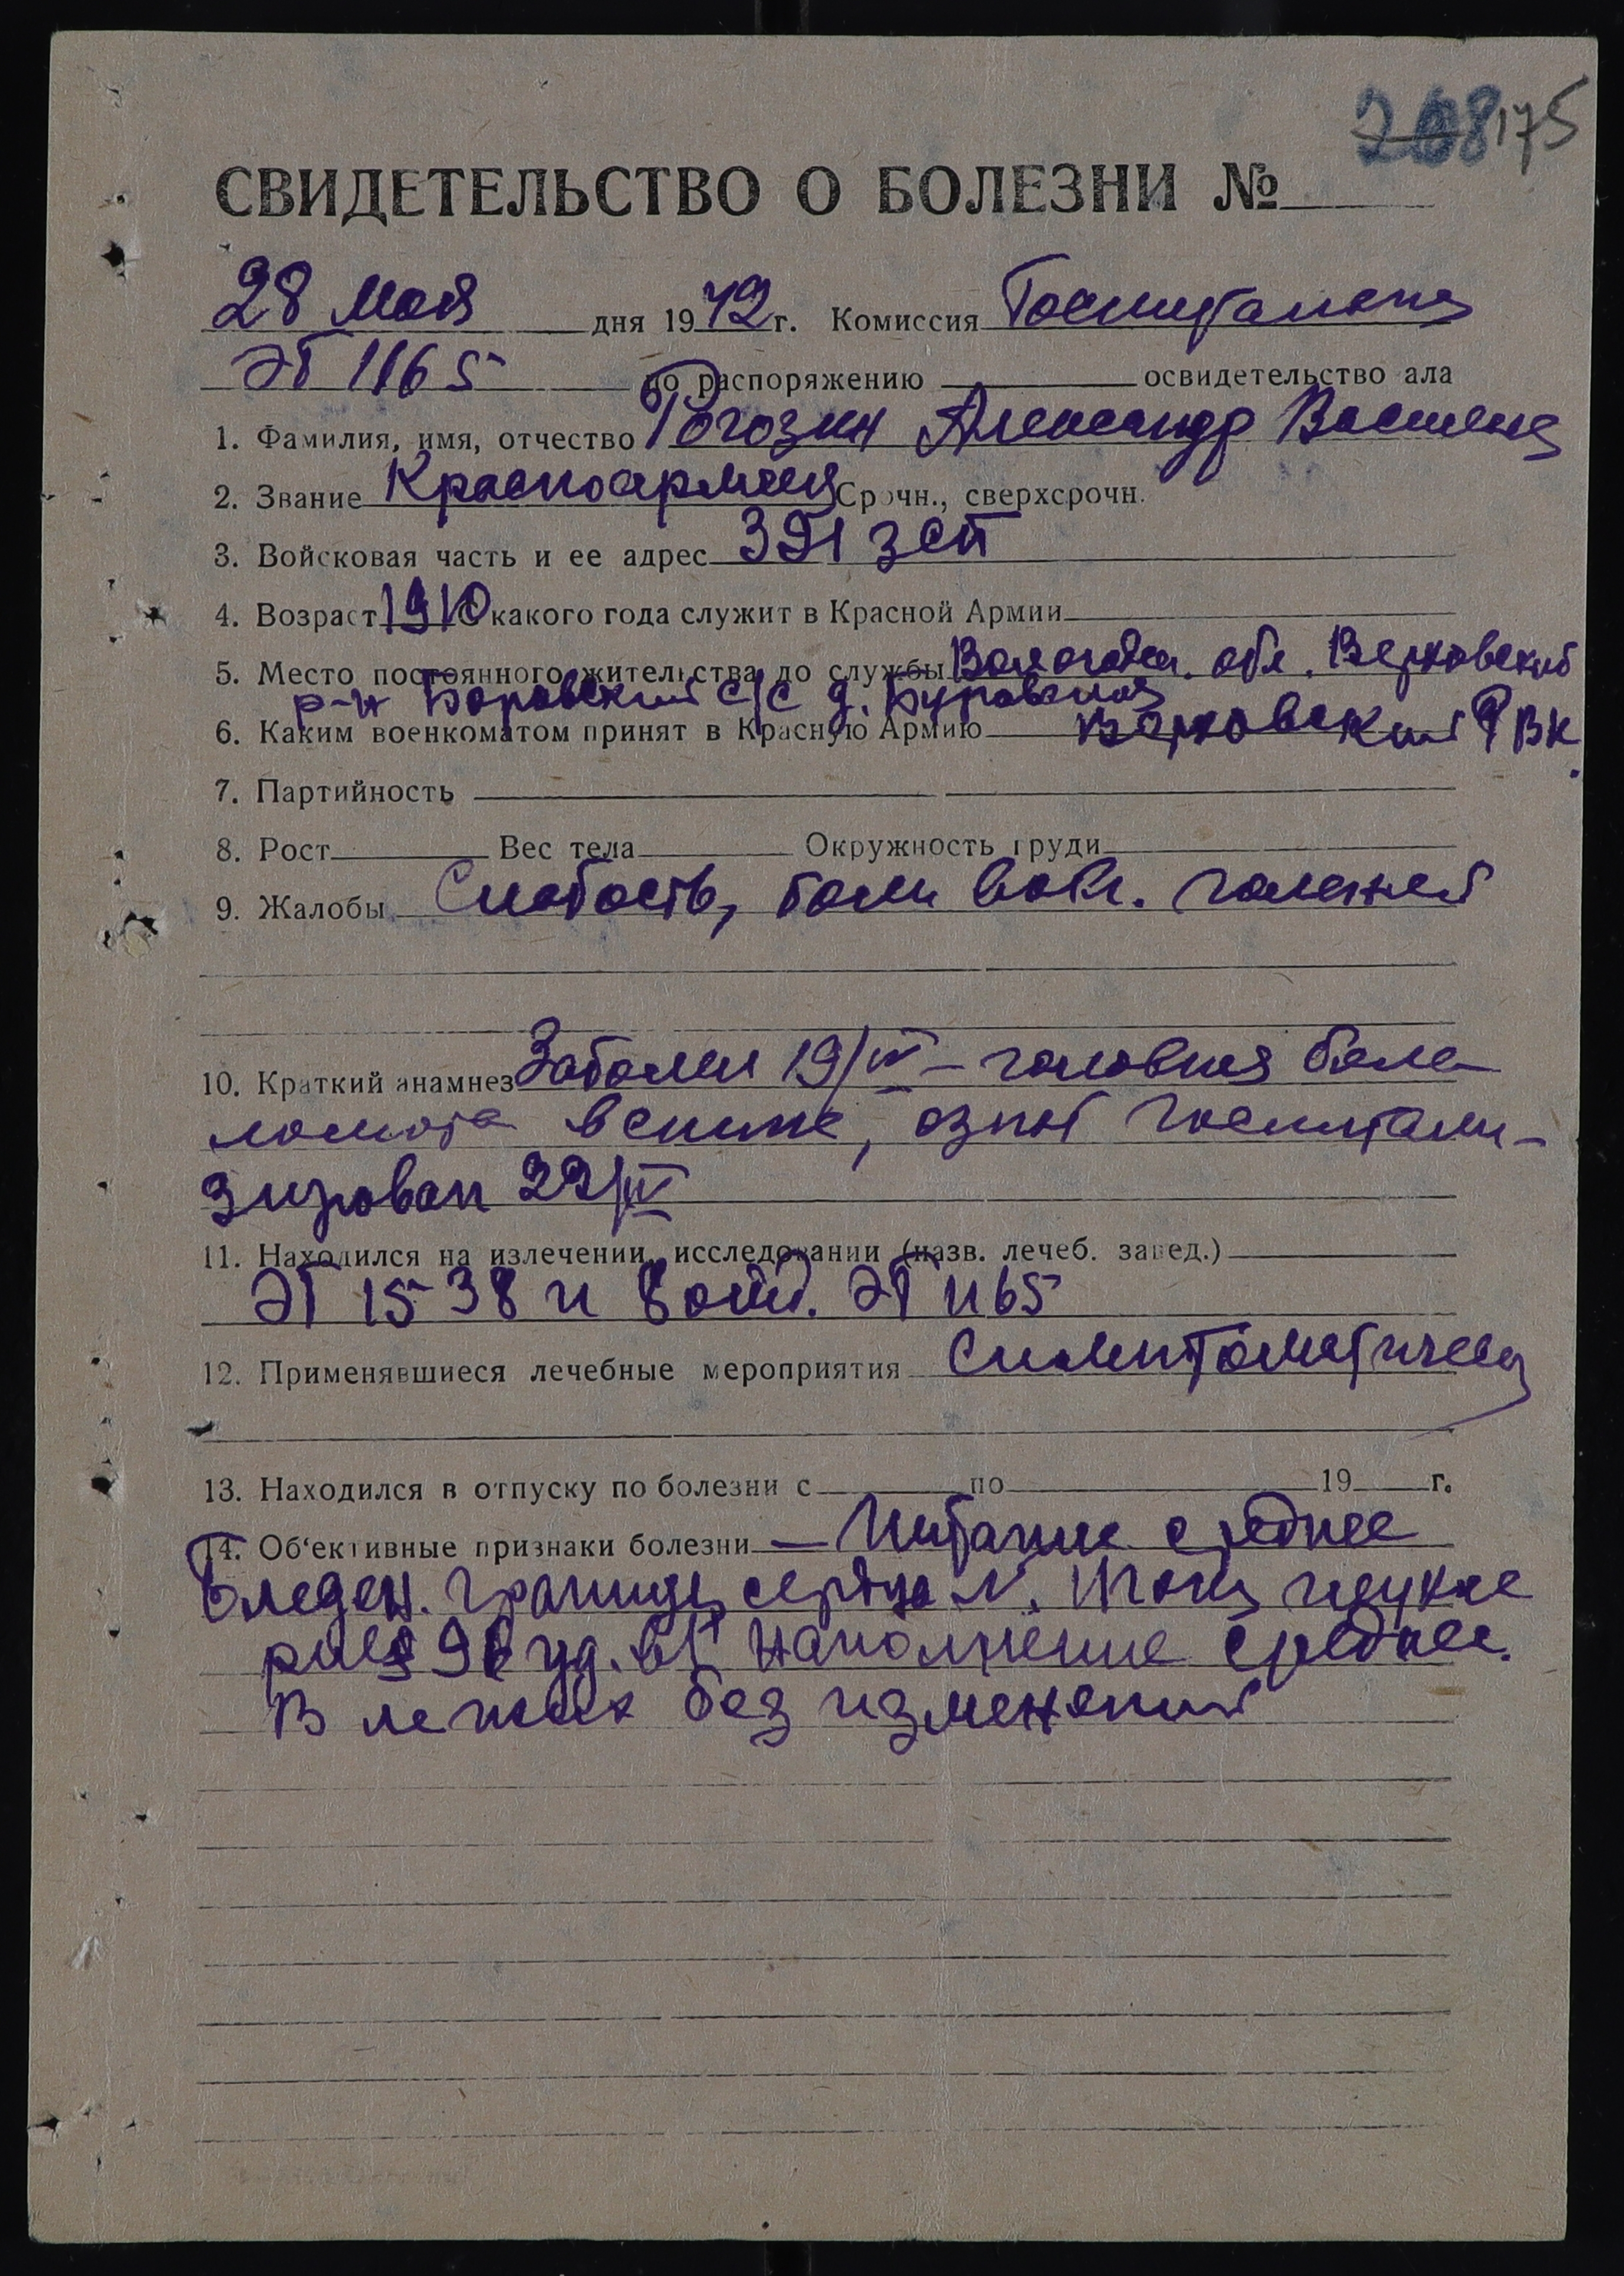 208 175
СВИДЕТЕЛЬСТВО О БОЛЕЗНИ №
28 мая дня 1942 г. Комиссия Госпитальная
ЭГ 1165 по распоряжению освидетельство ала
1. Фамилия, имя, отчество Рогозин Александр Василье
2. Звание Красноармеец Срочн., сверхсрочн.
3. Войсковая часть и ее адрес 391 зсп
4. Возраст 1910 С какого года служит в Красной Армии
5. Место постоянного жительства до службы Вологодск. обл. Верховский
р-н Боровский с/с д. Буровская
6. Каким военкоматом принят в Красную Армию Верховский РВК.
7. Партийность
8. Рост Вес тела Окружность груди
9. Жалобы Слабость, боли в обл. голеней
10. Краткий анамнез Заболел 19/IV – головная боль
ломота в спине, озноб Госпитали-
зирован 22/IV
11. Находился на излечении, исследовании (назв. лечеб. завед.)
ЭГ 1538 и 8 отд. ЭГ 1165
12. Применявшиеся лечебные мероприятия Симптоматическ
13. Находился в отпуску по болезни с по 19 г.
14. Об'ективные признаки болезни — Питание среднее
бледен. Границы сердца N. Тоны глухие
рulls 96 уд. в 1' наполнение среднее.
В легких без изменений